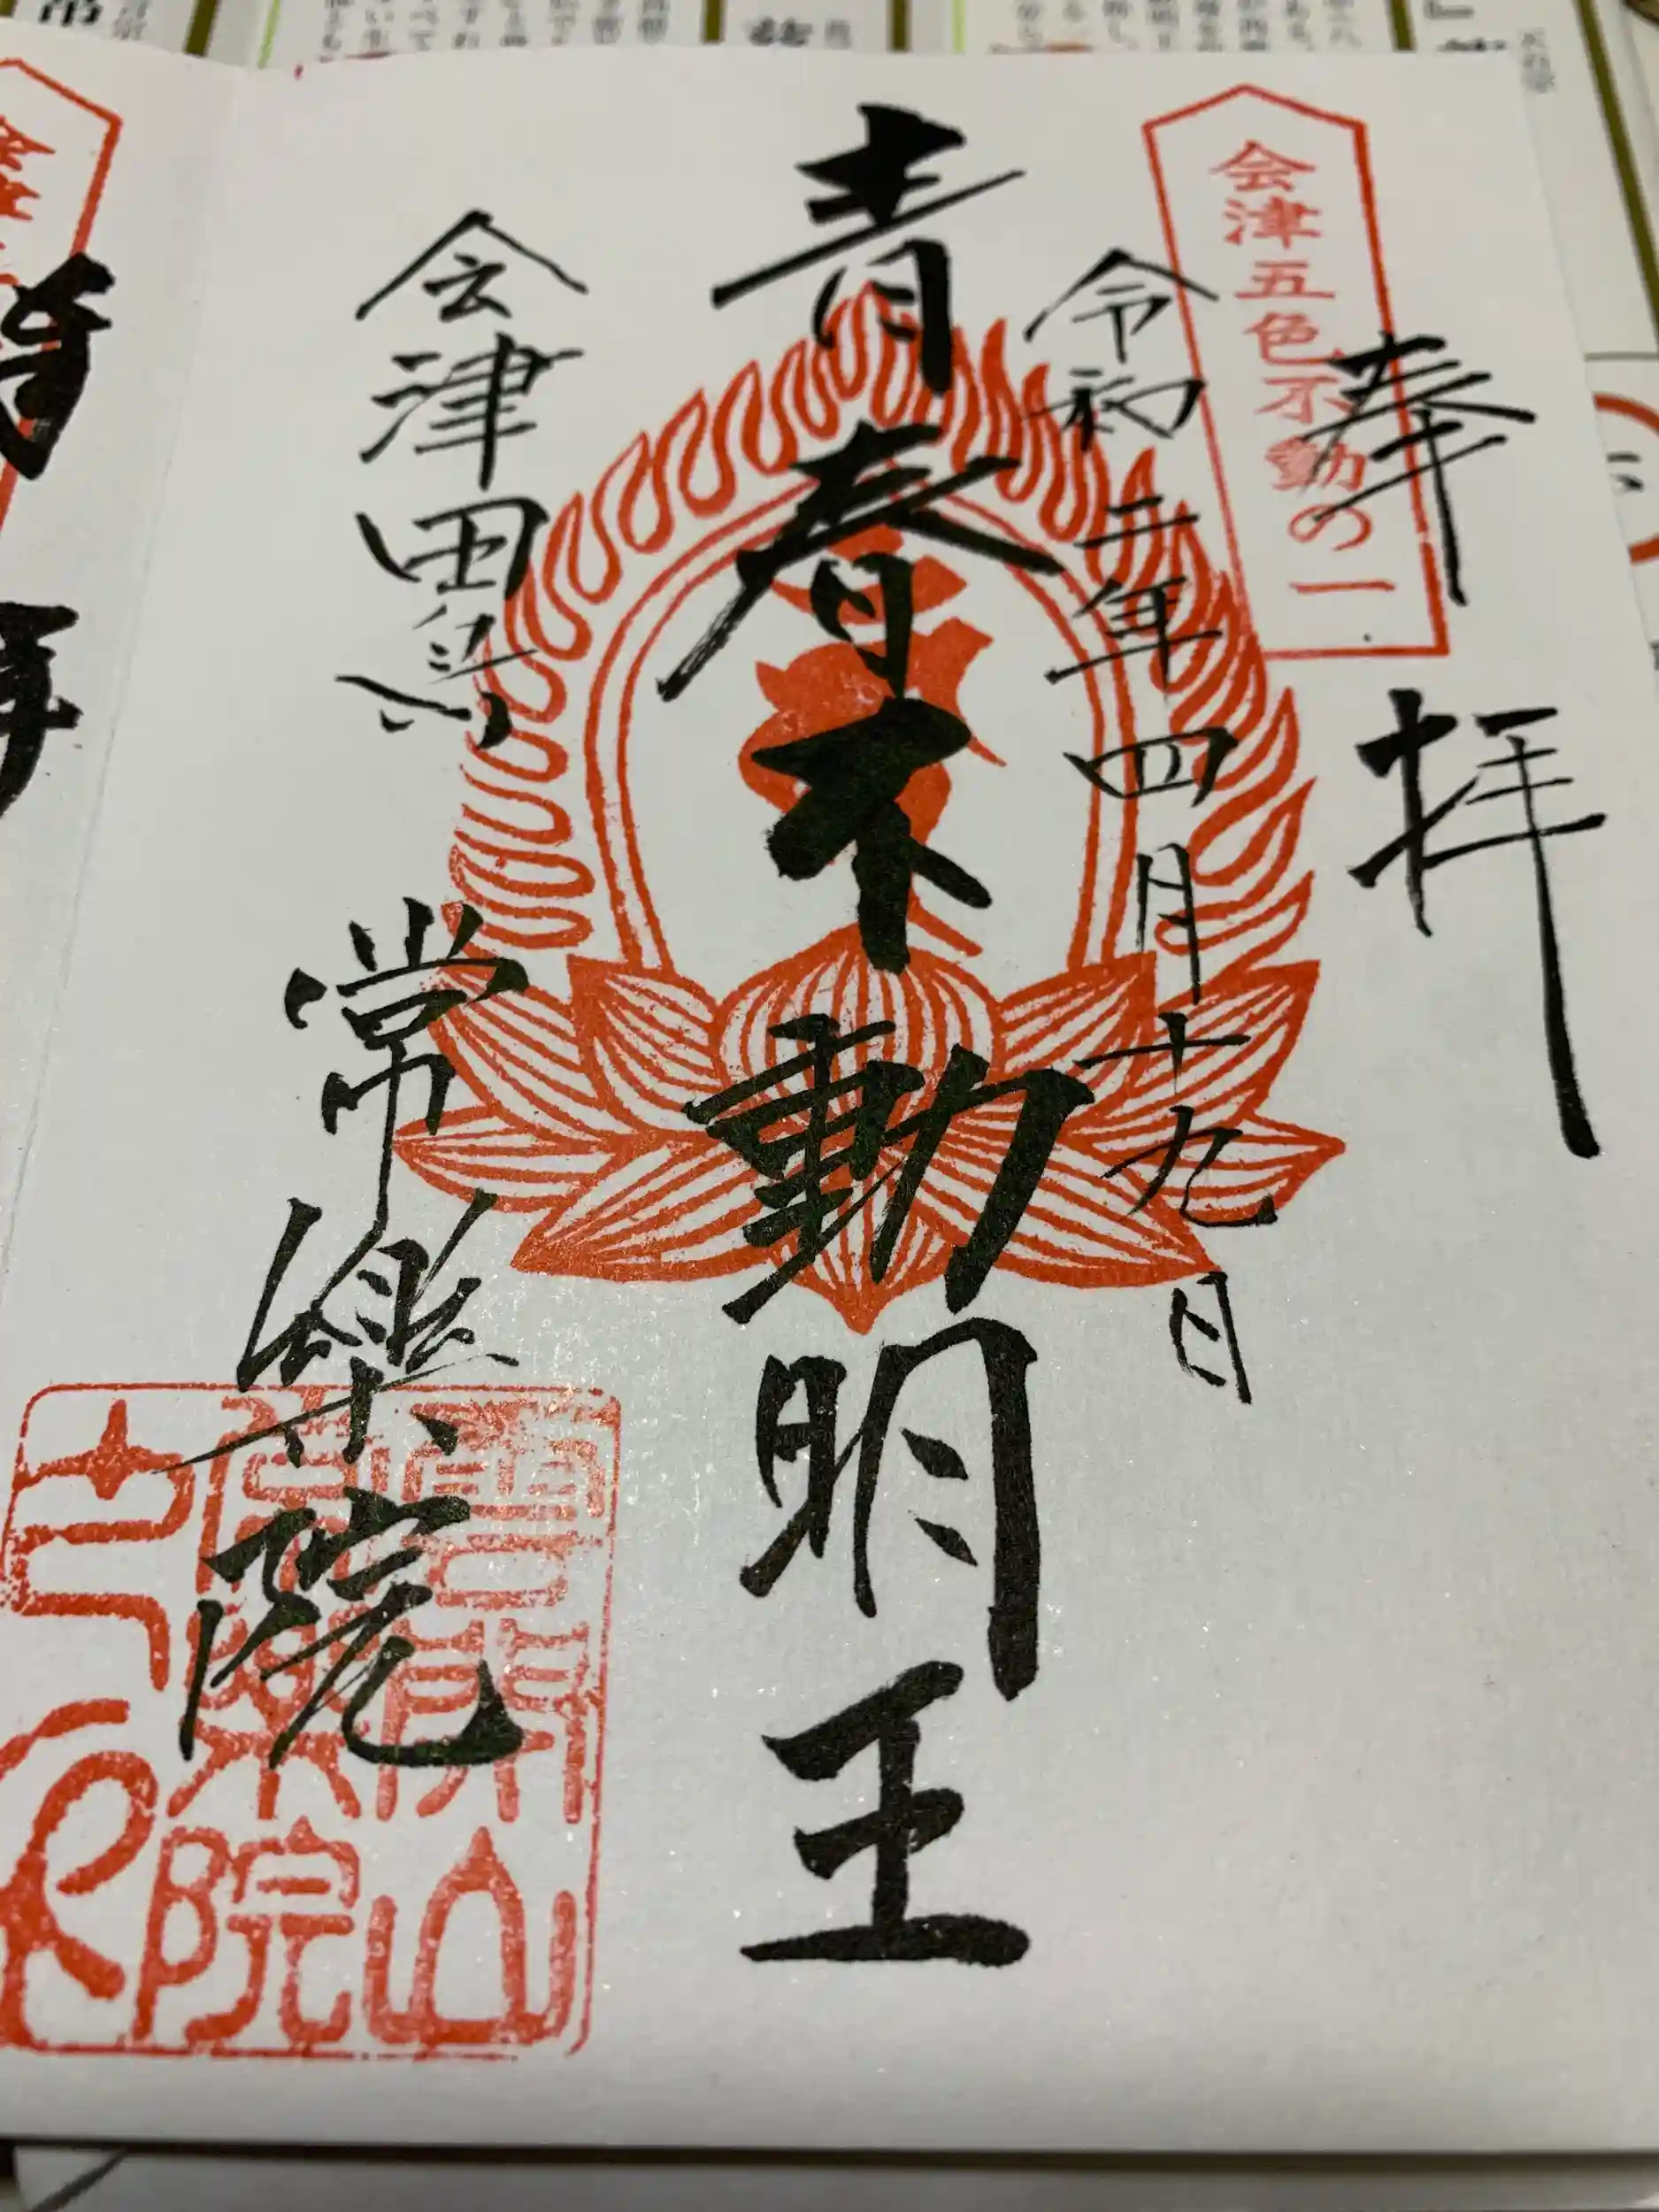 奉拝
会津五色不動の一
令和二年四月十九日
青春不動明王
会津田島
常楽院